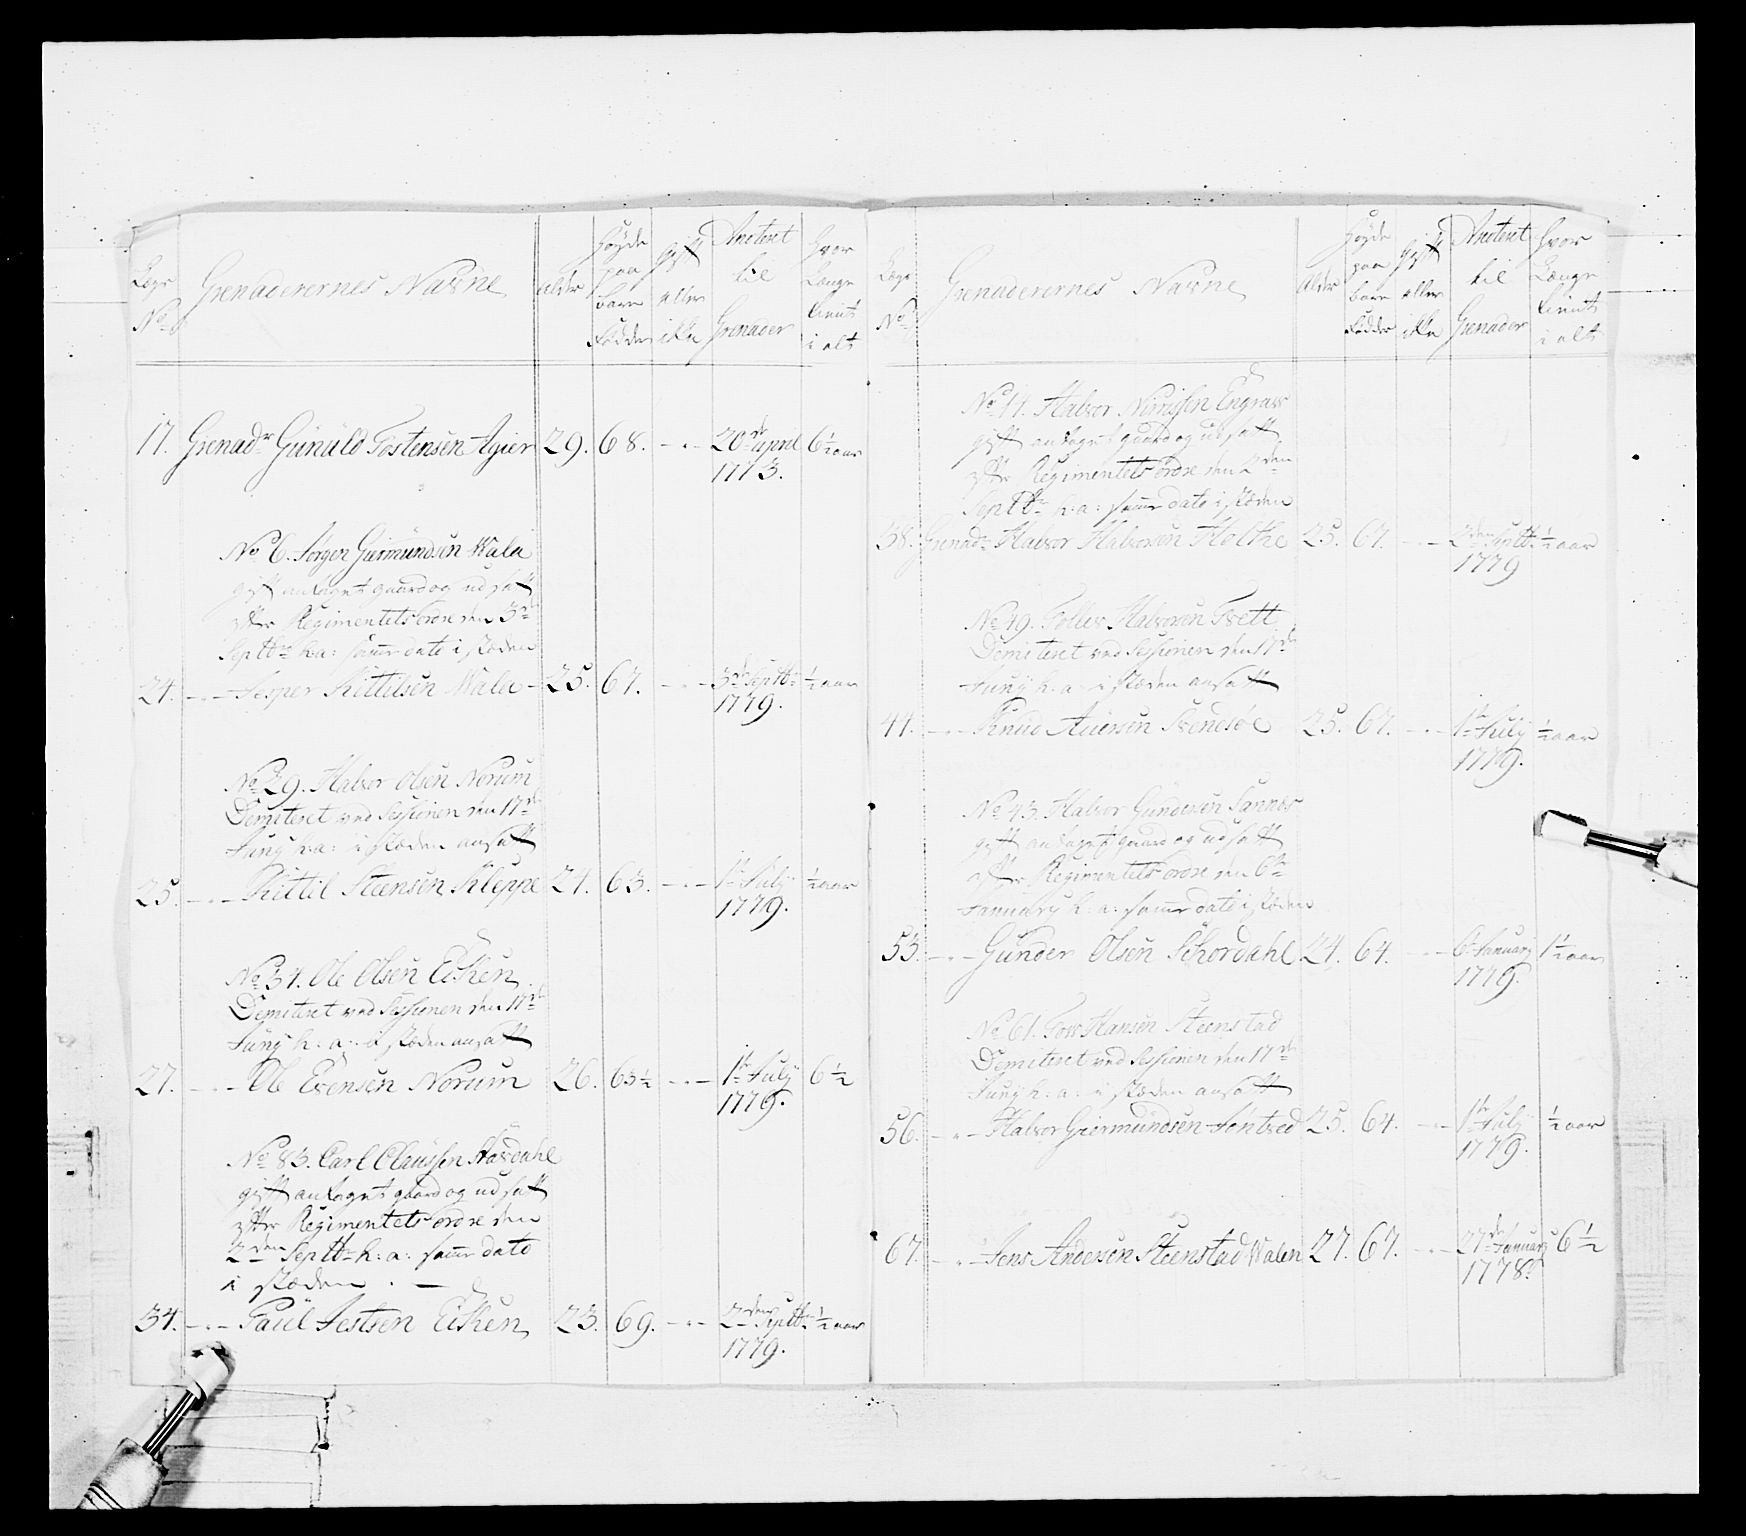 Lægs
No
Grenaderernes Navne
Alder
Høyde
paa
bare
Fødder
Gift
eller
ikke
Antert
til
Grenader
hvor
Længe
tient
i alt
17. Grenadr Gunuld Tostensen Agier 29. 68. - " - 20de april 6½ aar
1773.
No 6. Jørgen Guirmundsen Wala
gift antaget gaard og udsatt
efter Regimentets ordre den 3de
Septbr h: a: samme dato i stæden
24. - " - Jesper Kittilsen Wala - 25. 67. - " - 3de Septbr ½ aar
1779.
No 29. Halvor Olsen Norum
Demiteret ved Sessionen den 17de
Junÿ h: a: i stæden ansatt
25. - " - Kittil Steensen Kleppe 24. 63. - " - 1te Julÿ ½ aar
1779.
No 34. Ole Olsen Eiken
Demiteret ved Sessionen den 17de
Junÿ h: a: i stæden ansatt
27. - " - Ole Evensen Norum 26. 63½ - " - 1te Julÿ 6½
1779.
No 83. Carl Claussen Havdahl
gift antaget gaard og udsatt
efter Regimentets ordre den
2den Septbr h: a: samme dato
i stæden . —
34. - " - Paul Jestsen Eiken 23. 69. - " - 2den Septbr ½ aar
1779.
Lægs
No
Grenaderernes Navne
Alder
Høyde
paa
bare
Fødder
Gift
eller
ikke
Antert
til
Grenader
hvor
Længe
tient
i alt
No 14. Halvor Nirissen Engrav
gift antaget gaard og udsatt
efter Regimentets ordre den 2den
Septbr h: a: samme dato i stæden
38. Grenadr Halvor Halvorsen Holthe 25. 67. - " - 2den Septbr ½ aar
1779
No 49. Tollev Halvorsen Tvett
Demiteret ved Sessionen den 17de
Junÿ h: a: i stæden ansatt
44. - " - Knud Aversen Svenesøe 25. 67. - " - 1te Julÿ ½ aar
1779.
No 43. Halvor Gundersen Sannes
gift antaget gaard og udsatt
efter Regimentets ordre den 6te
Januarÿ h: a: samme dato i stæden
53. - " - Gunder Olsen Schordahl 24. 64. - " - 6te Januarÿ 1½ aar
1779.
No 61. Tov Hansen Steenstad
Demiteret ved Sessionen den 17de
Junÿ h: a: i stæden ansatt
56. - " - Halvor Guirmundsen Søntved 25. 64. - " - 1te Julÿ ½ aar
1779.
67. - " - Jens Andersen Steenstad Walen 27. 67. - " - 27de Januarÿ 6½
1778.